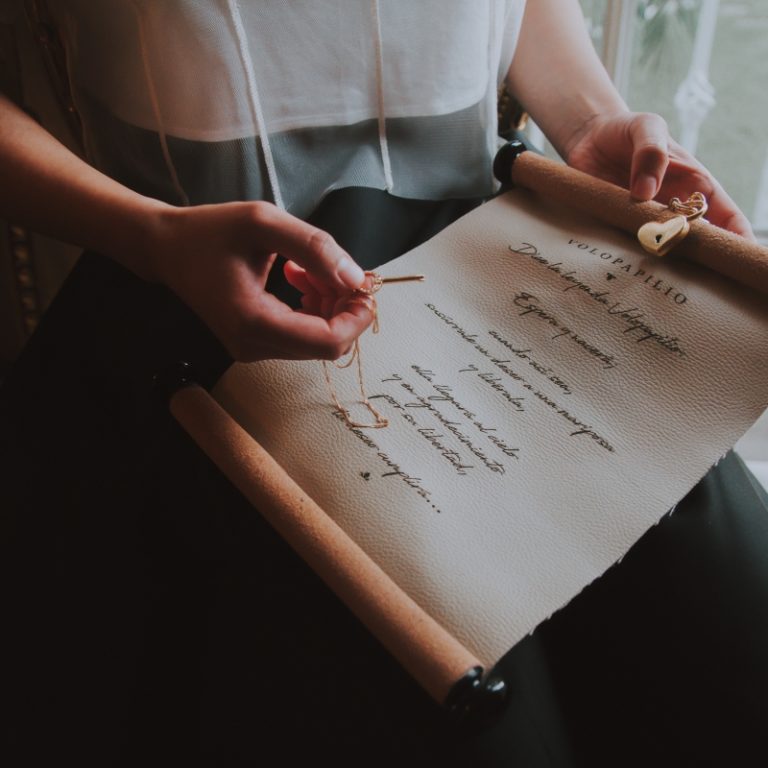 VOLOPAPILIO
Dice la leyenda Volopapilio:
Espera y renacerás,
cuando así sea,
susúrrale un deseo a una mariposa
y libérala,
ella llegará al cielo
y en agradecimiento
por su libertad,
tu deseo cumplirá...